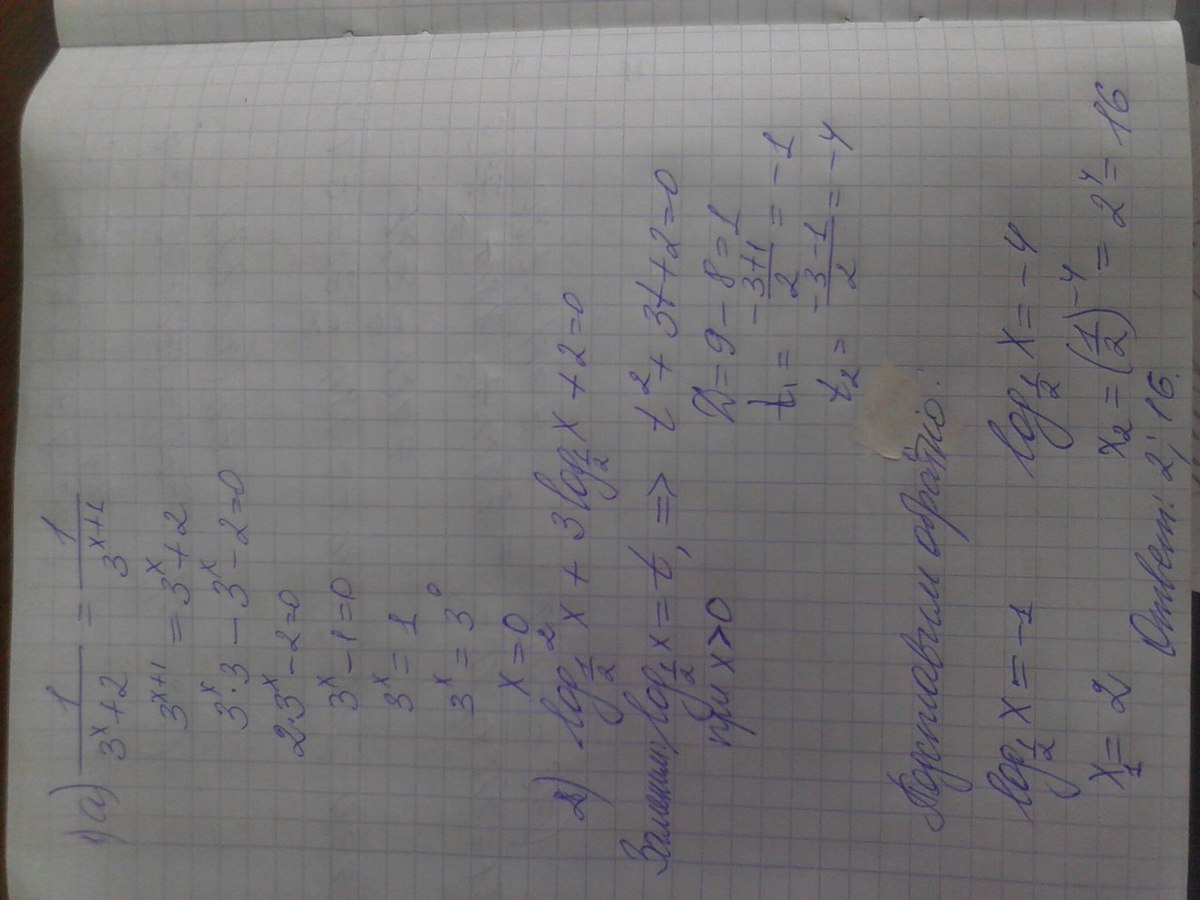 1) а) 1/(3^x+2) = 1/3^(x+1)
3^(x+1) = 3^x+2
3^x·3 − 3^x − 2=0
2·3^x − 2=0
3^x − 1=0
3^x = 1
3^x = 3^0
x=0
2) log²_(1/2) x + 3 log_(1/2) x + 2=0
Заменим, log_(1/2) x = t, => t² + 3t + 2=0
при x>0
D=9 − 8=1
t₁= (−3+1)/2 = −1
t₂= (−3−1)/2 = −4
Подставим обратно:
log_(1/2) x = −1 log_(1/2) x = −4
x₁ = 2, x₂ = (1/2)^(−4) = 2^4 = 16
Ответ: 2; 16.